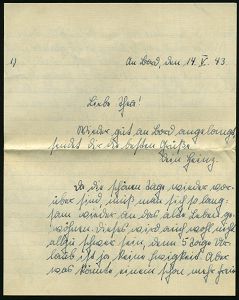 1)
An Bord, den 14. V. 43.
Liebe Thea!
Wieder gut an Bord angelangt
sendet dir die besten Grüße.
Dein Heinz.
Da die schönen Tage wieder vor-
über sind, muß man sich lang-
sam wieder an das alte Leben ge-
wöhnen. Dieses wird auch wohl nicht
allzu schwer sein, denn 5 Tage Ur-
laub ist ja keine Ewigkeit. Aber
was könnte einem schon mehr